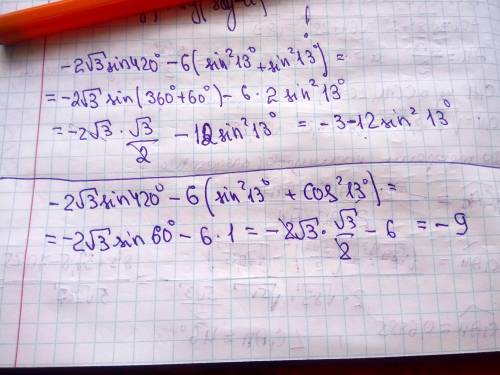 -2√3 sin420° - 6(sin²13° + sin²13°) =
= -2√3 sin(360°+60°) - 6·2 sin²13°
= -2√3 · √3/2 - 12sin²13° = -3-12sin²13°
-2√3 sin420° - 6(sin²13° + cos²13°) =
= -2√3 sin60° - 6·1 = -2√3 · √3/2 - 6 = -9